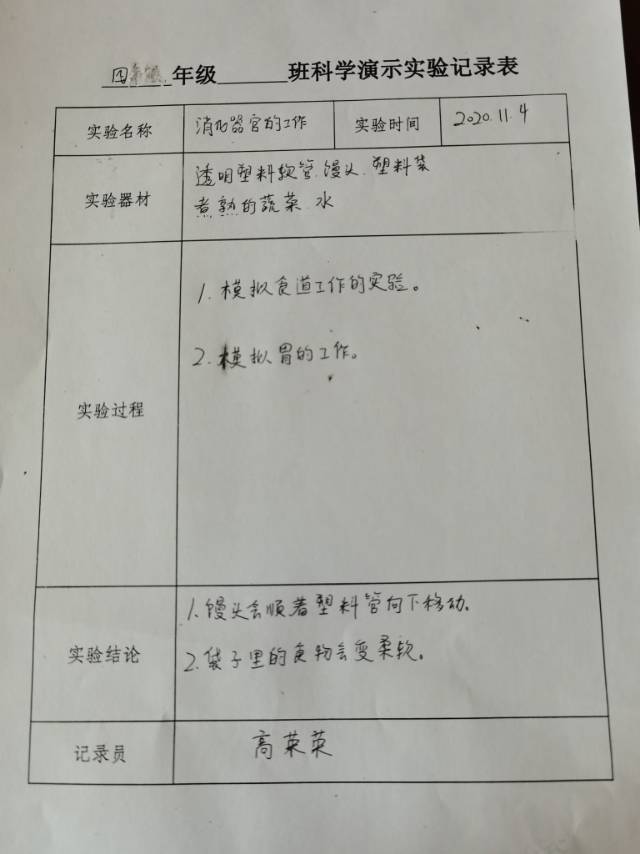 四 年级______班科学演示实验记录表
实验名称 消化器官的工作 实验时间 2020.11.4
实验器材 透明塑料软管.馒头.塑料袋
煮熟的蔬菜.水
实验过程
1.模拟食道工作的实验。
2.模拟胃的工作。
实验结论
1.馒头会顺着塑料管向下移动.
2.袋子里的食物会变柔软。
记录员 高英英